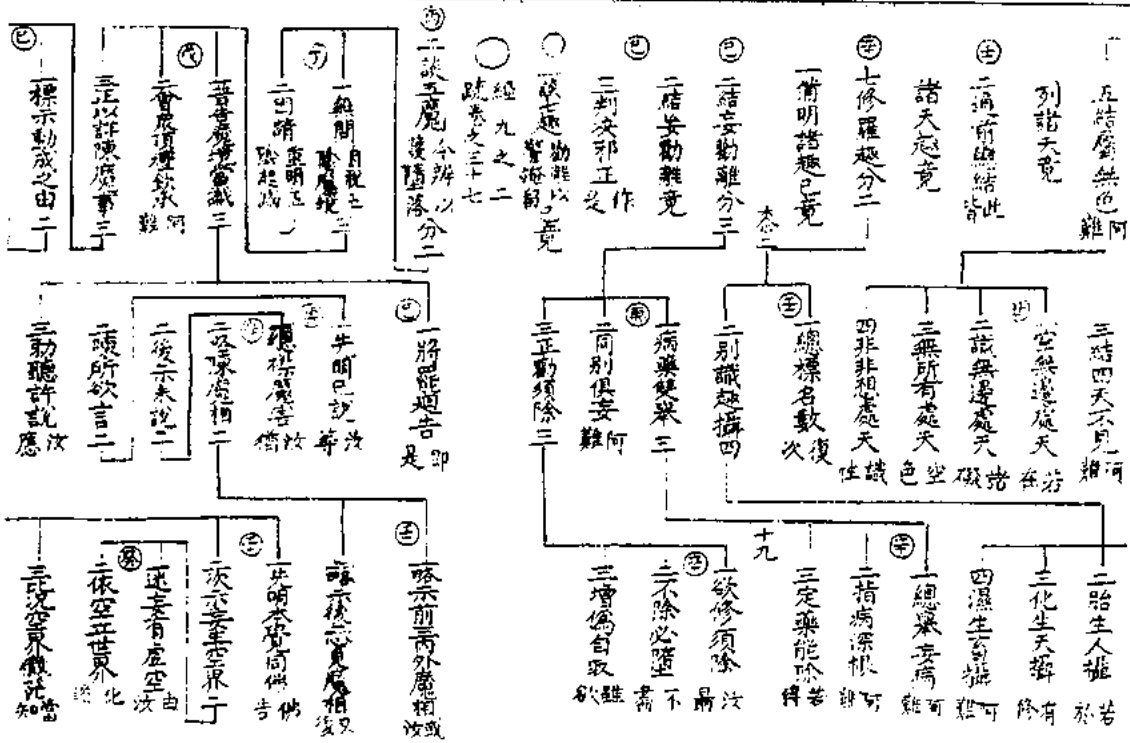 五結屬無色 阿難
列諸天竟
壬 二通前總結 此皆
諸天趣竟
辛 七修羅趣分二
一備明諸趣已竟
己 二結妄勸離分三
二結妄勸離竟
己 三判決邪正 作是
一談七趣勸離以警淹留已竟
經九之二
疏卷之三十七
丙 二談五魔 令辨以護墮落 分二
丁 一無問自說五陰魔境 三
二因請重明五陰起滅
一普告魔境當識 三
戊 二會眾頂禮欽承 阿難
三正以詳陳魔事 三
己 一標示動成之由 二
三結四天不見 阿難
一空無邊處天 若在
二識無邊處天 諸礙
三無所有處天 空色
四非非想處天 識性
壬 一總標名數 復次
二別識趣攝 四
一病藥雙舉 三
二同別俱妄 阿難
三正勸須除 三
己 一將罷迴告 即是
一先聞已說 汝等
總標魔害 汝猶
二略陳處相 二
二後示未說 二
二頭所欲言 二
三勸聽許說 汝應
二胎生人攝 若於
三化生天攝 有修
四濕生畜攝 阿難
辛 一總舉妄病 阿難
二指病深根 阿難
三定藥能除 若得
十九
辛 一欲修須除 汝勗
二不除必墮 不盡
三增偽自取 雖欲
壬 一略示前三內外魔相 或汝
二略示後二心見魔相 又復
壬 一先明本覺同佛 佛告
二次示妄生空界 二
癸 一迷妄有虛空 由汝
二依空立世界 化
三況空界微茫 當知